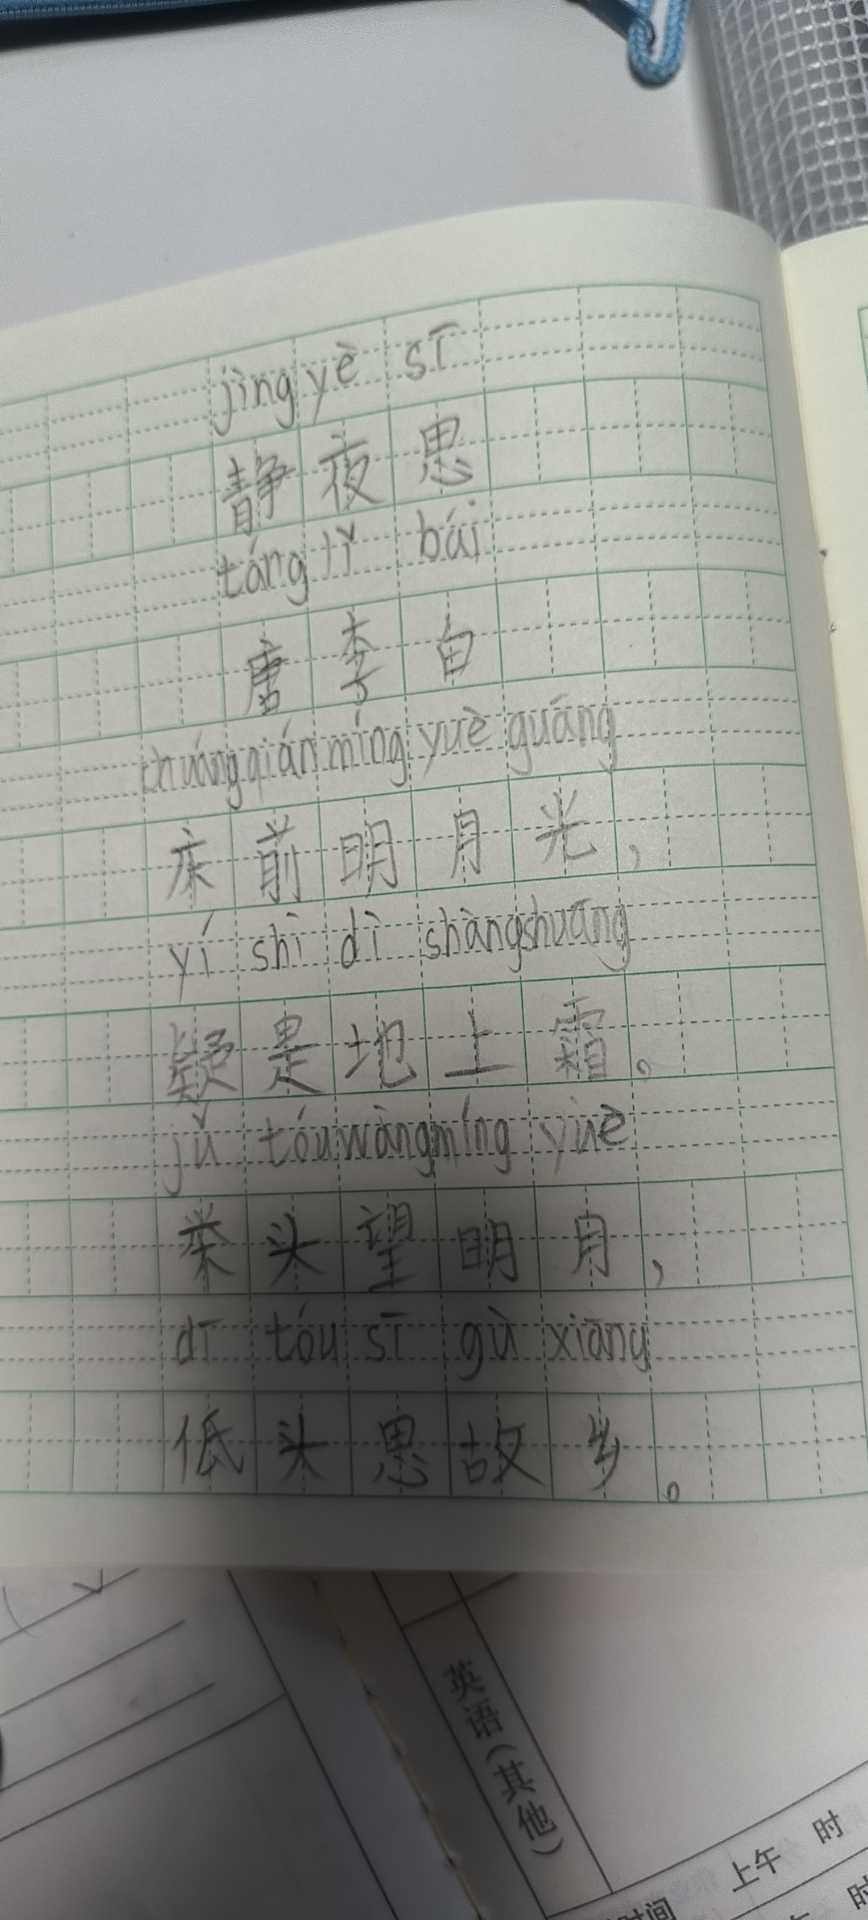 jìng yè sī
静夜思
táng lǐ bái
唐李白
chuáng qián míng yuè guāng
床前明月光，
yí shì dì shàng shuāng
疑是地上霜。
jǔ tóu wàng míng yuè
举头望明月，
dī tóu sī gù xiāng
低头思故乡。
英语（其他）
上午 时
时间
时